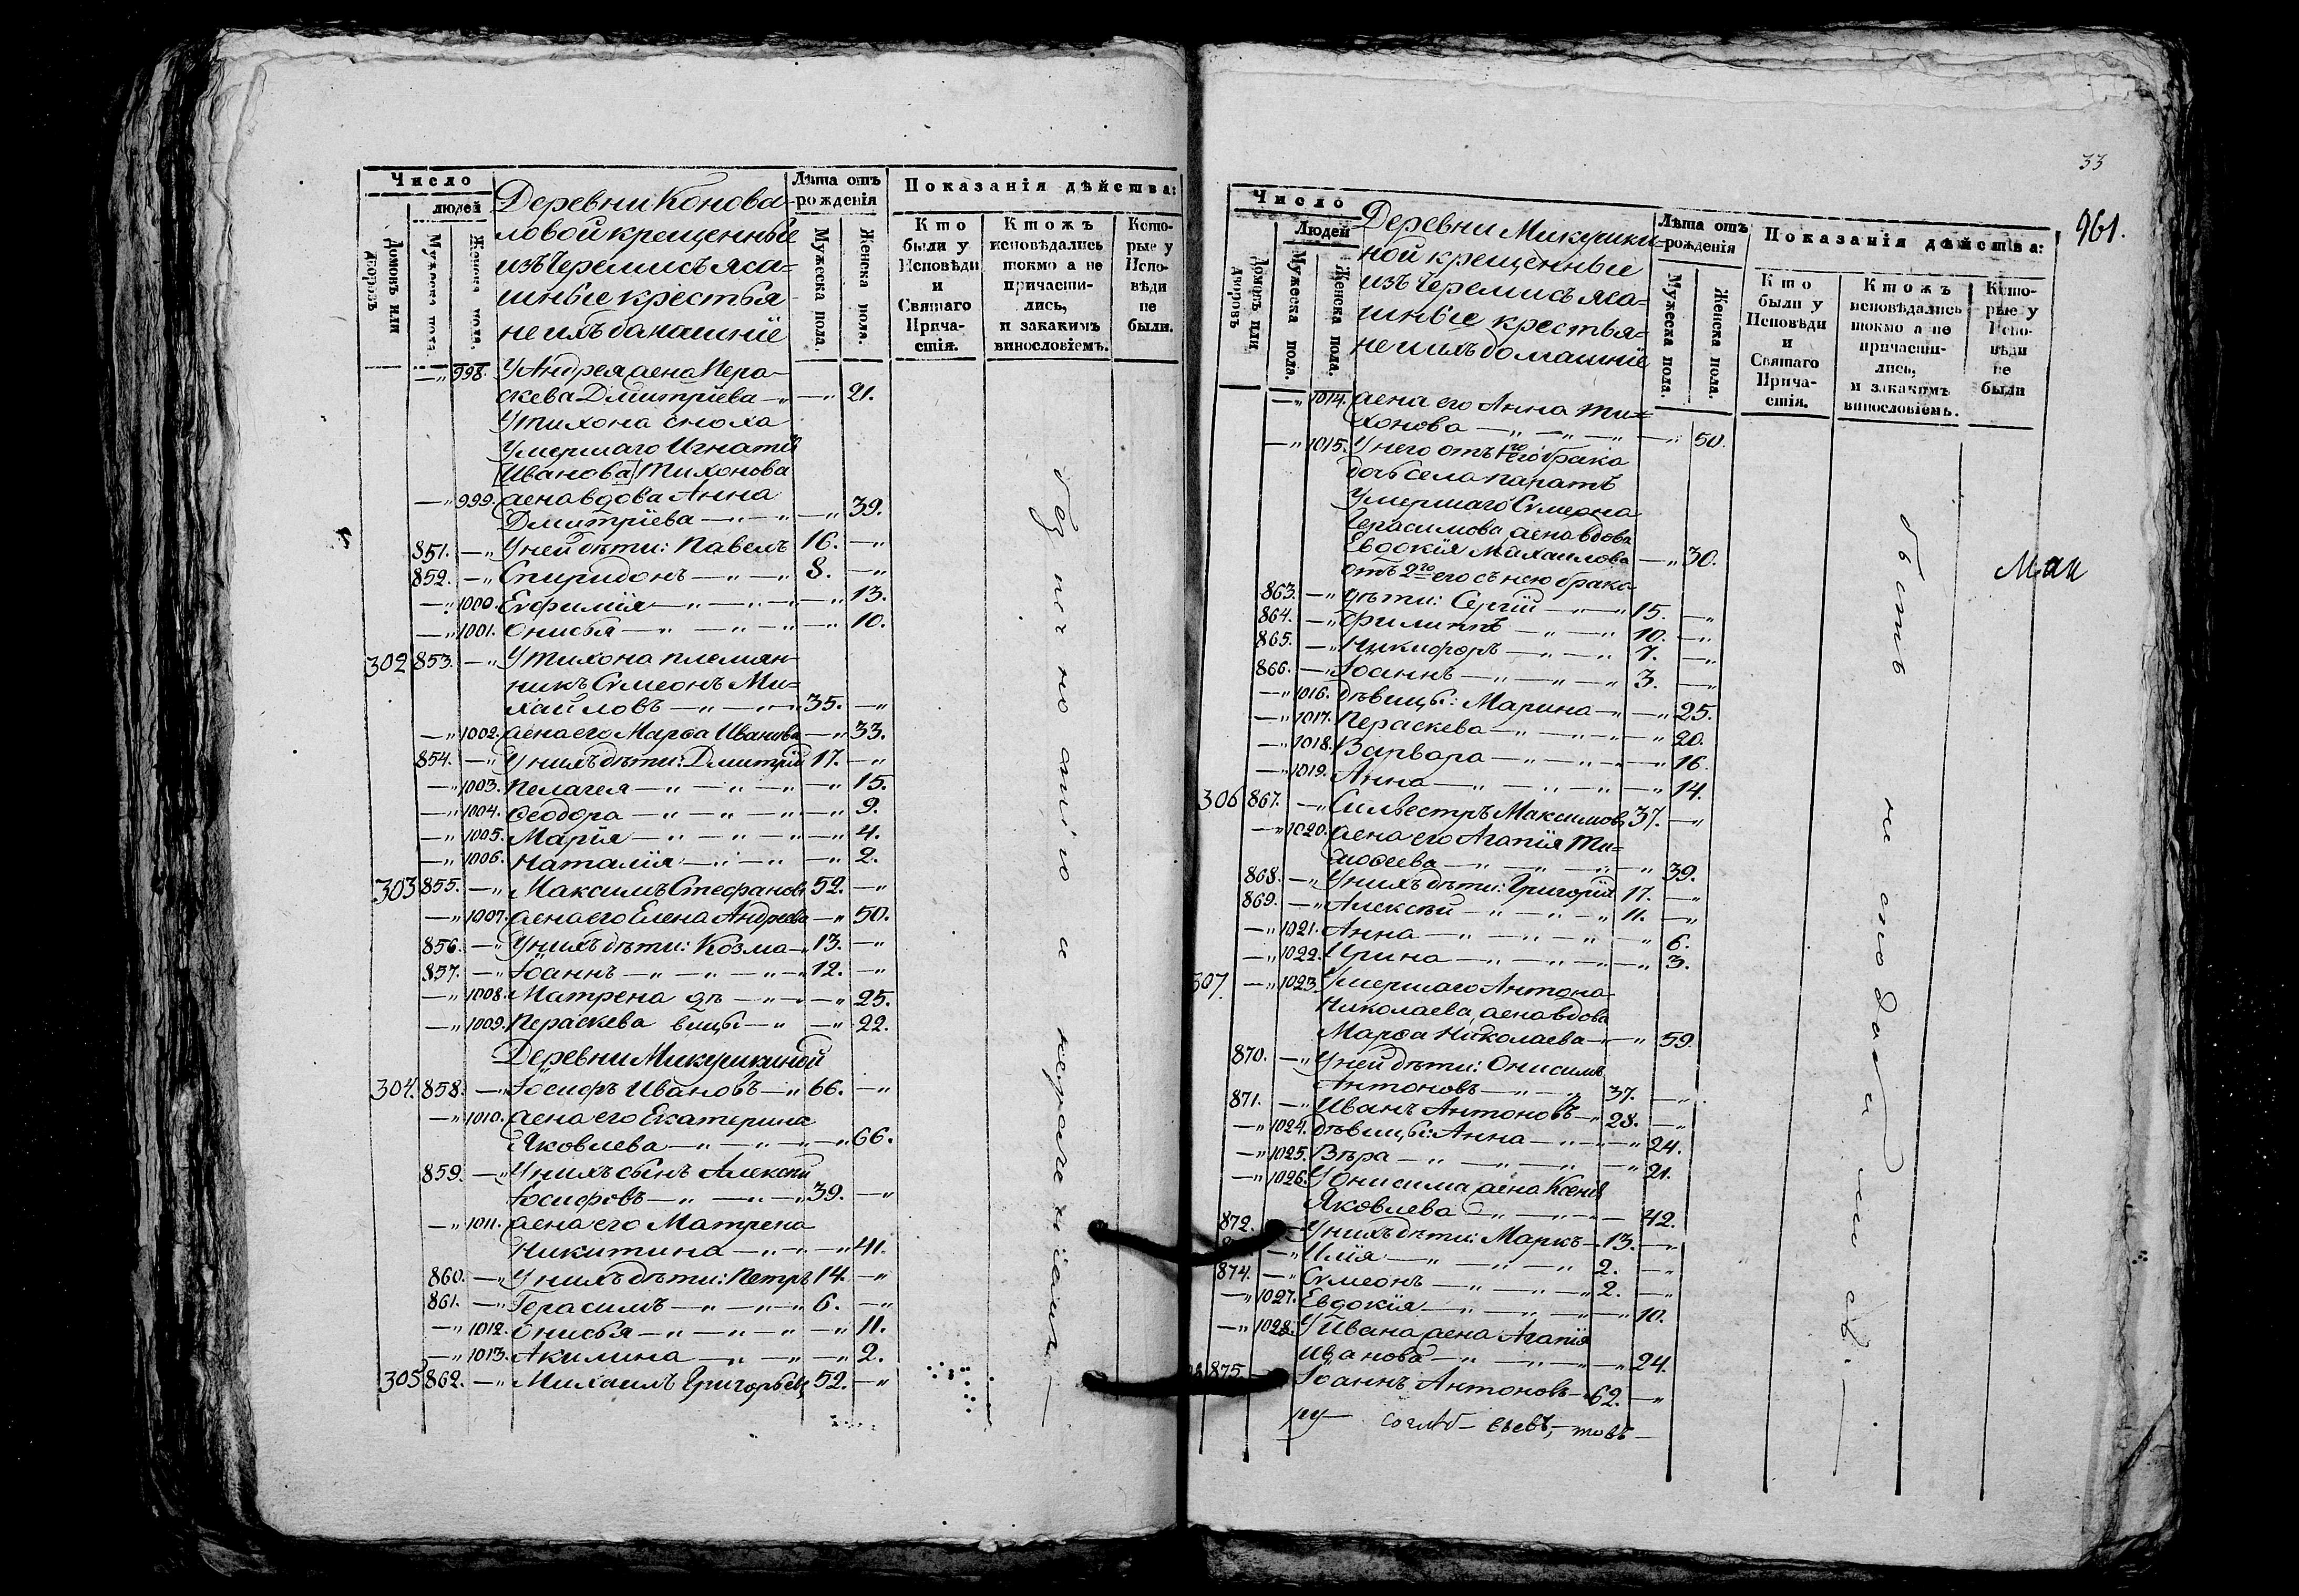 Число
людей
Домовъ или дворовъ
Мужеска пола.
Женска пола.
Деревни Конова-
ловой крещенные
изъ Черемисъ яса=
шные крестья-
не ихъ домашніе
Лѣта отъ рожденія
Мужеска пола.
Женска пола.
Показанія дѣйства:
Кто были у Исповѣди и Святаго Прича-стія.
Ктожъ исповѣдались токмо а не причасти-лись, и закакимъ винословіемъ.
Кото-рые у Испо-вѣди не были.
—„ 998. У Андрея жена Пера-
скева Дмитріева —„ —„ 21.
У Тихона сноха
Умершаго Игнатія
Иванова /Тихонова
—„ 999. жена вдова Анна
Дмитріева —„—„ —„ 39.
851. —„ У ней дѣти: Павелъ 16. —„
852. —„ Спиридонъ —„—„ 8. —„
—„ 1000. Евфимія —„—„— —„ 13.
—„ 1001. Онисья —„—„—„ —„ 10.
302 853. —„ У Тихона племян-
никъ Симеонъ Ми=
хайловъ —„—„—„ 35. —„
—„ 1002. жена его Марѳа Иванова —„ 33.
854. —„ У нихъ дѣти: Дмитрій 17. —„
—„ 1003. Пелагея —„—„—„ —„ 15.
—„ 1004. Ѳеодора —„—„—„ —„ 9.
—„ 1005. Марія —„—„—„ —„ 4.
—„ 1006. Наталія —„—„ —„ 2.
303 855. —„ Максимъ Стефановъ 52. —„
—„ 1007. жена его Елена Андреева —„ 50.
856. —„ У нихъ дѣти: Козма —„ 13. —„
857. —„ Іоаннъ —„—„—„ 12. —„
—„ 1008. Матрена дѣ —„— —„ 25.
—„ 1009. Пераскева вицы —„ —„ 22.
Деревни Микушкиной
304. 858. —„ Іосифъ Ивановъ —„ 66. —„
—„ 1010. жена его Екатерина
Яковлева —„—„— —„ 66.
859. —„ У нихъ сынъ Алексѣй
Іосифовъ —„—„—„ 39. —„
—„ 1011. жена его Матрена
Никитина —„—„ —„ 41.
860. —„ У нихъ дѣти: Петръ 14. —„
861. —„ Герасимъ —„—„—„ 6. —„
—„ 1012. Онисья —„—„—„ —„ 11.
—„ 1013. Акилина —„—„ —„ 2.
305 862. —„ Михаилъ Григорьевъ 52. —„
33
961.
Число
Людей
Домовъ или дворовъ
Мужеска пола.
Женска пола.
Деревни Микушки=
ной крещенные
изъ Черемисъ яса=
шные крестья=
не и ихъ домашніе
Лѣта отъ рожденія
Мужеска пола.
Женска пола.
Показанія дѣйства:
Кто были у Исповѣди и Святаго Прича-стія.
Ктожъ исповѣдались токмо а не причасти-лись, и закакимъ винословіемъ.
Кото-рые у Испо-вѣди не были
—„ 1014. жена его Анна Ти=
хонова —„—„—„ —„ 50.
—„ 1015. У него отъ 1го его брака
дочь села Паратъ
Умершаго Симеона
Герасимова жена вдова
Евдокія Михаилова —„ 30.
отъ 2го его съ нею брака
863. —„ дѣти: Сергій —„—„ 15. —„
864. —„ Филиппъ —„—„ 10. —„
865. —„ Никифоръ —„—„ 7. —„
866. —„ Іоаннъ —„—„—„ 3. —„
—„ 1016. дѣвицы: Марина —„ —„ 25.
—„ 1017. Пераскева —„—„— —„ 20.
—„ 1018. Варвара —„—„— —„ 16.
—„ 1019. Анна —„—„—„ —„ 14.
306 867. —„ Сильвестръ Максимовъ 37. —„
—„ 1020. жена его Агапія Ти=
моѳеева —„—„—„ —„ 39.
868. —„ У нихъ дѣти: Григорій 17. —„
869. —„ Алексѣй —„—„—„ 11. —„
—„ 1021. Анна —„—„—„ —„ 6.
—„ 1022. Ирина —„—„— —„ 3.
307. —„ 1023. Умершаго Антона
Николаева, жена вдова
Марѳа Николаева —„ —„ 59.
870. —„ У ней дѣти: Онисимъ
Антоновъ —„—„ 37. —„
871. —„ Иванъ Антоновъ —„ 28. —„
—„ 1024. дѣвицы: Анна —„—„ —„ 24.
—„ 1025. Вѣра —„—„—„ —„ 21.
—„ 1026. У Онисима жена Ксенія
Яковлева —„—„— — 42.
872. —„ У нихъ дѣти: Маркъ — 13. —„
—„ Илія —„—„—„ 2. —„
874. —„ Симеонъ —„—„—„ 2. —„
—„ 1027. Евдокія —„—„— —„ 10.
—„ 1028. У Ивана жена Агапія
Иванова —„—„— —„ 24.
875. — Іоаннъ Антоновъ — 62. —„